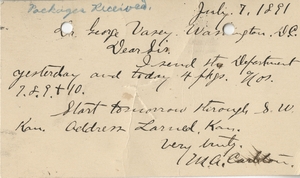 Packages Received.
July 7, 1891
Dr. George Vasey, Washington, D.C.
Dear Sir,
I send the Department
yesterday and today 4 pkgs. Nos.
7. 8. 9 & 10.
Start tomorrow through S. W.
Kan. Address Larned, Kan.
Very truly,
M.A. Carleton.